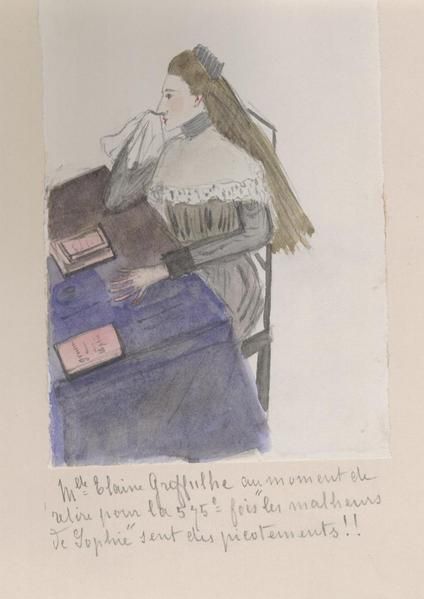 Mlle Elaine Greffulhe au moment de
relire pour la 575e fois "les malheurs
de Sophie" sent des picotements!!